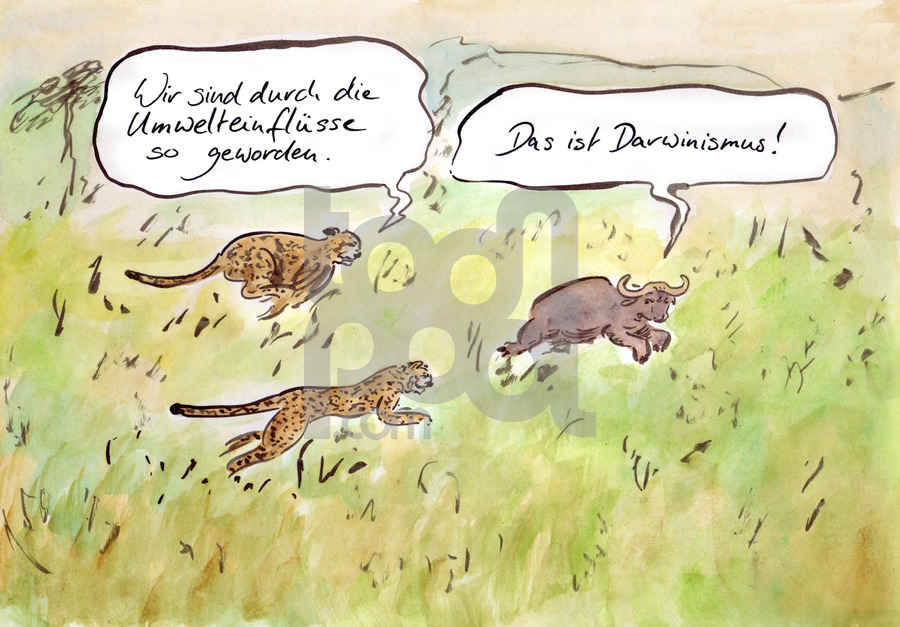 Wir sind durch die
Umwelteinflüsse
so geworden.
Das ist Darwinismus!
toonpool
.com